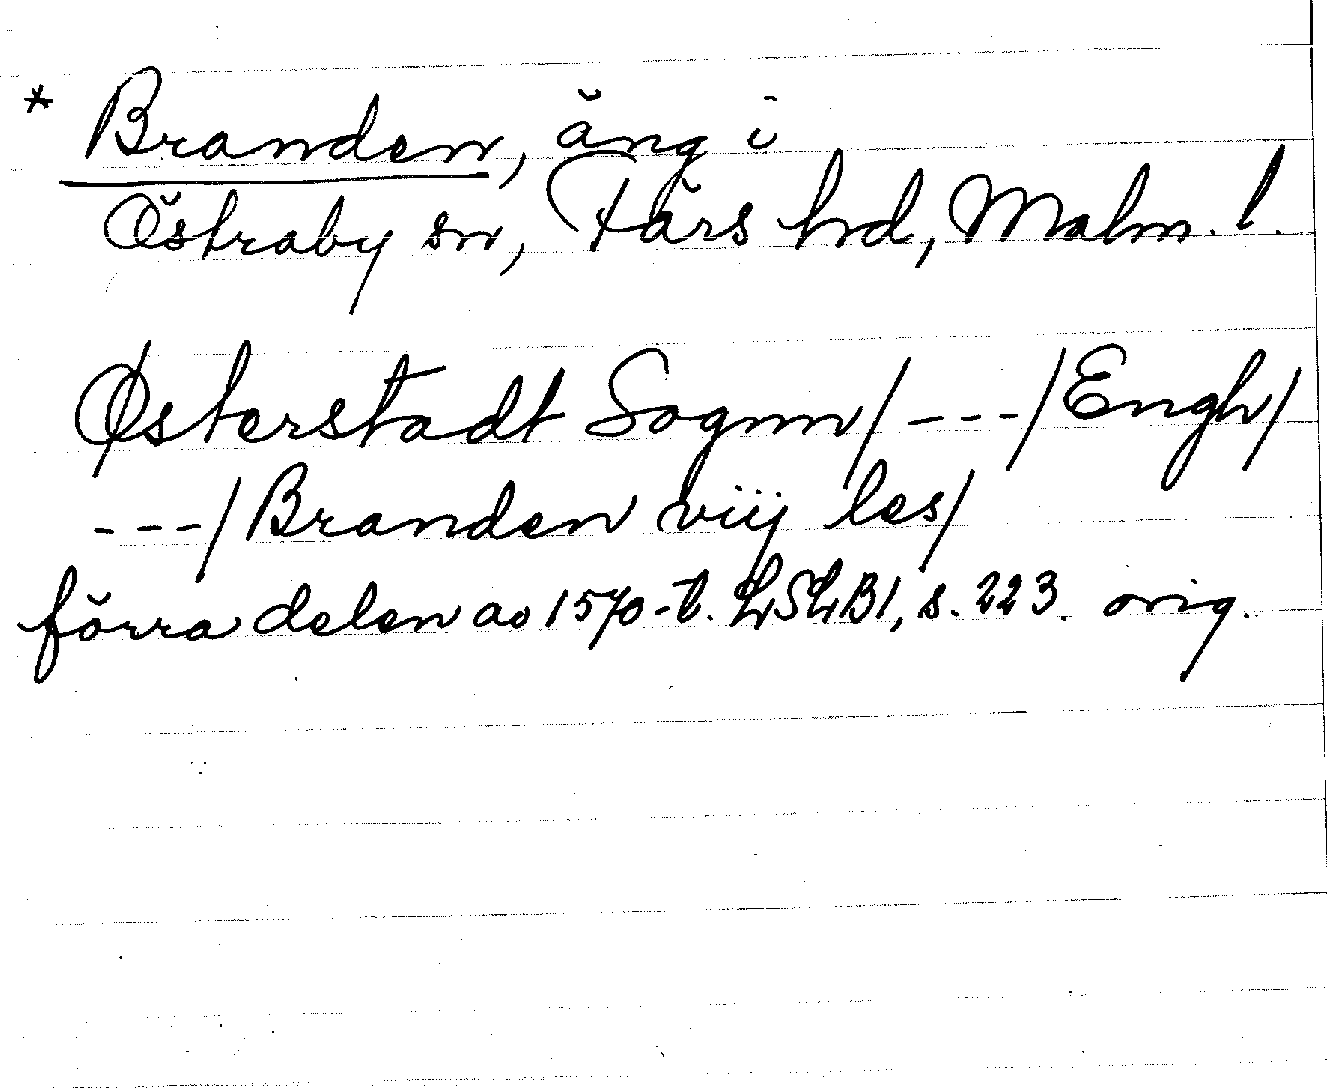 * Branden, äng i
Östraby sn, Färs hd, Malm. l.
Østerstadt Sognn/ ---/Engh/
---/Branden viij les/
förra delen av 1570-t. LSLB1, s. 223. orig.